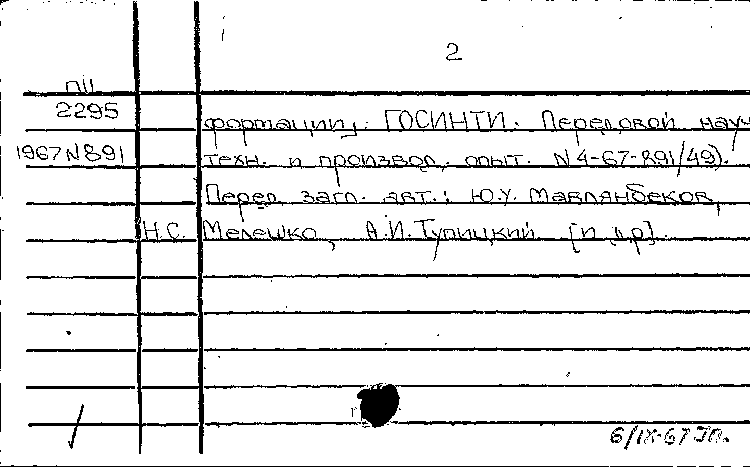 2
пII
2295
формации, ГОСИНТИ. Передовой науч
1967 N 891
техн. и производ. опыт. N 4-67-891/49).
Перед загл. авт.: Ю.У. Мавлянбеков,
Н.С. Мелешко, А.И. Тупицкий [и др].
6/IX-67